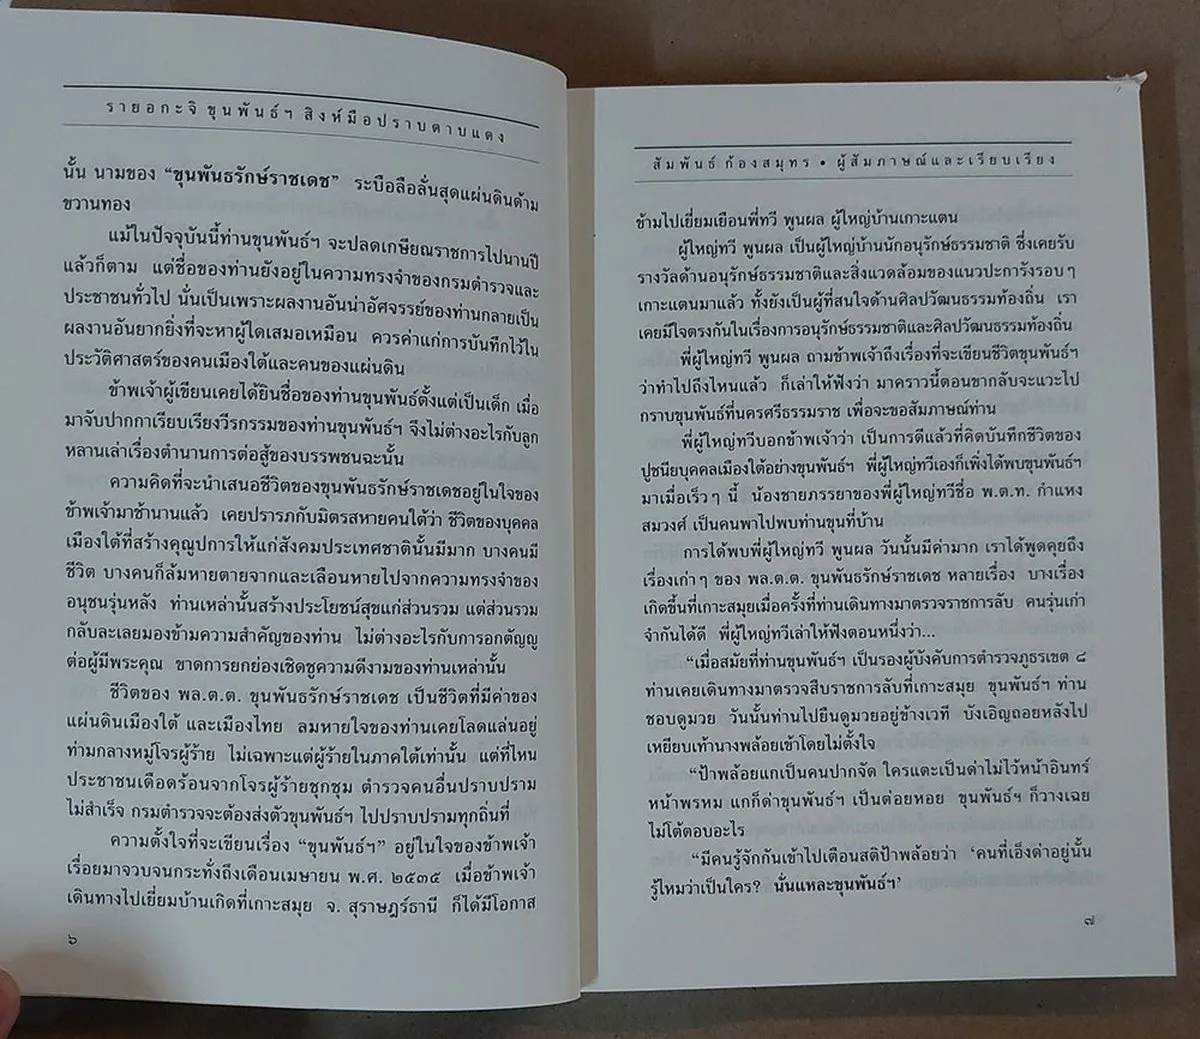 รายอกะจิ ขุนพันธ์ฯ สิงห์มือปราบดาบแดง
นั้น นามของ “ขุนพันธรักษ์ราชเดช” ระบือลือลั่นสุดแผ่นดินด้าม
ขวานทอง
แม้ในปัจจุบันนี้ท่านขุนพันธ์ฯ จะปลดเกษียณราชการไปนานปี
แล้วก็ตาม แต่ชื่อของท่านยังอยู่ในความทรงจำของกรมตำรวจและ
ประชาชนทั่วไป นั่นเป็นเพราะผลงานอันน่าอัศจรรย์ของท่านกลายเป็น
ผลงานอันยากยิ่งที่จะหาผู้ใดเสมอเหมือน ควรค่าแก่การบันทึกไว้ใน
ประวัติศาสตร์ของคนเมืองใต้และคนของแผ่นดิน
ข้าพเจ้าผู้เขียนเคยได้ยินชื่อของท่านขุนพันธ์ตั้งแต่เป็นเด็ก เมื่อ
มาจับปากกาเรียบเรียงวีรกรรมของท่านขุนพันธ์ฯ จึงไม่ต่างอะไรกับลูก
หลานเล่าเรื่องตำนานการต่อสู้ของบรรพชนฉะนั้น
ความคิดที่จะนำเสนอชีวิตของขุนพันธรักษ์ราชเดชอยู่ในใจของ
ข้าพเจ้ามาช้านานแล้ว เคยปรารภกับมิตรสหายคนใต้ว่า ชีวิตของบุคคล
เมืองใต้ที่สร้างคุณูปการให้แก่สังคมประเทศชาตินั้นมีมาก บางคนมี
ชีวิต บางคนก็ล้มหายตายจากและเลือนหายไปจากความทรงจำของ
อนุชนรุ่นหลัง ท่านเหล่านั้นสร้างประโยชน์สุขแก่ส่วนรวม แต่ส่วนรวม
กลับละเลยมองข้ามความสำคัญของท่าน ไม่ต่างอะไรกับการอกตัญญู
ต่อผู้มีพระคุณ ขาดการยกย่องเชิดชูความดีงามของท่านเหล่านั้น
ชีวิตของ พล.ต.ต. ขุนพันธรักษ์ราชเดช เป็นชีวิตที่มีค่าของ
แผ่นดินเมืองใต้ และเมืองไทย ลมหายใจของท่านเคยโลดแล่นอยู่
ท่ามกลางหมู่โจรผู้ร้าย ไม่เฉพาะแต่ผู้ร้ายในภาคใต้เท่านั้น แต่ที่ไหน
ประชาชนเดือดร้อนจากโจรผู้ร้ายชุกชุม ตำรวจคนอื่นปราบปราม
ไม่สำเร็จ กรมตำรวจจะต้องส่งตัวขุนพันธ์ฯ ไปปราบปรามทุกถิ่นที่
ความตั้งใจที่จะเขียนเรื่อง “ขุนพันธ์ฯ” อยู่ในใจของข้าพเจ้า
เรื่อยมาจวบจนกระทั่งถึงเดือนเมษายน พ.ศ. ๒๕๓๕ เมื่อข้าพเจ้า
เดินทางไปเยี่ยมบ้านเกิดที่เกาะสมุย จ. สุราษฎร์ธานี ก็ได้มีโอกาส
๖
สัมพันธ์ ก้องสมุทร • ผู้สัมภาษณ์และเรียบเรียง
ข้ามไปเยี่ยมเยือนพี่ทวี พูนผล ผู้ใหญ่บ้านเกาะแตน
ผู้ใหญ่ทวี พูนผล เป็นผู้ใหญ่บ้านนักอนุรักษ์ธรรมชาติ ซึ่งเคยรับ
รางวัลด้านอนุรักษ์ธรรมชาติและสิ่งแวดล้อมของแนวปะการังรอบๆ
เกาะแตนมาแล้ว ทั้งยังเป็นผู้ที่สนใจด้านศิลปวัฒนธรรมท้องถิ่น เรา
เคยมีใจตรงกันในเรื่องการอนุรักษ์ธรรมชาติและศิลปวัฒนธรรมท้องถิ่น
พี่ผู้ใหญ่ทวี พูนผล ถามข้าพเจ้าถึงเรื่องที่จะเขียนชีวิตขุนพันธ์ฯ
ว่าทำไปถึงไหนแล้ว ก็เล่าให้ฟังว่า มาคราวนี้ตอนขากลับจะแวะไป
กราบขุนพันธ์ที่นครศรีธรรมราช เพื่อจะขอสัมภาษณ์ท่าน
พี่ผู้ใหญ่ทวีบอกข้าพเจ้าว่า เป็นการดีแล้วที่คิดบันทึกชีวิตของ
ปูชนียบุคคลเมืองใต้อย่างขุนพันธ์ฯ พี่ผู้ใหญ่ทวีเองก็เพิ่งได้พบขุนพันธ์ฯ
มาเมื่อเร็วๆ นี้ น้องชายภรรยาของพี่ผู้ใหญ่ทวีชื่อ พ.ต.ท. กำแหง
สมวงศ์ เป็นคนพาไปพบท่านขุนที่บ้าน
การได้พบพี่ผู้ใหญ่ทวี พูนผล วันนั้นมีค่ามาก เราได้พูดคุยถึง
เรื่องเก่าๆ ของ พล.ต.ต. ขุนพันธรักษ์ราชเดช หลายเรื่อง บางเรื่อง
เกิดขึ้นที่เกาะสมุยเมื่อครั้งที่ท่านเดินทางมาตรวจราชการลับ คนรุ่นเก่า
จำกันได้ดี พี่ผู้ใหญ่ทวีเล่าให้ฟังตอนหนึ่งว่า...
“เมื่อสมัยที่ท่านขุนพันธ์ฯ เป็นรองผู้บังคับการตำรวจภูธรเขต ๘
ท่านเคยเดินทางมาตรวจสืบราชการลับที่เกาะสมุย ขุนพันธ์ฯ ท่าน
ชอบดูมวย วันนั้นท่านไปยืนดูมวยอยู่ข้างเวที บังเอิญถอยหลังไป
เหยียบเท้านางพล้อยเข้าโดยไม่ตั้งใจ
“ป้าพล้อยแกเป็นคนปากจัด ใครแตะเป็นด่าไม่ไว้หน้าอินทร์
หน้าพรหม แกก็ด่าขุนพันธ์ฯ เป็นต่อยหอย ขุนพันธ์ฯ ก็วางเฉย
ไม่โต้ตอบอะไร
“มีคนรู้จักกันเข้าไปเตือนสติป้าพล้อยว่า ‘คนที่เอ็งด่าอยู่นั้น
รู้ไหมว่าเป็นใคร? นั่นแหละขุนพันธ์ฯ’
๗